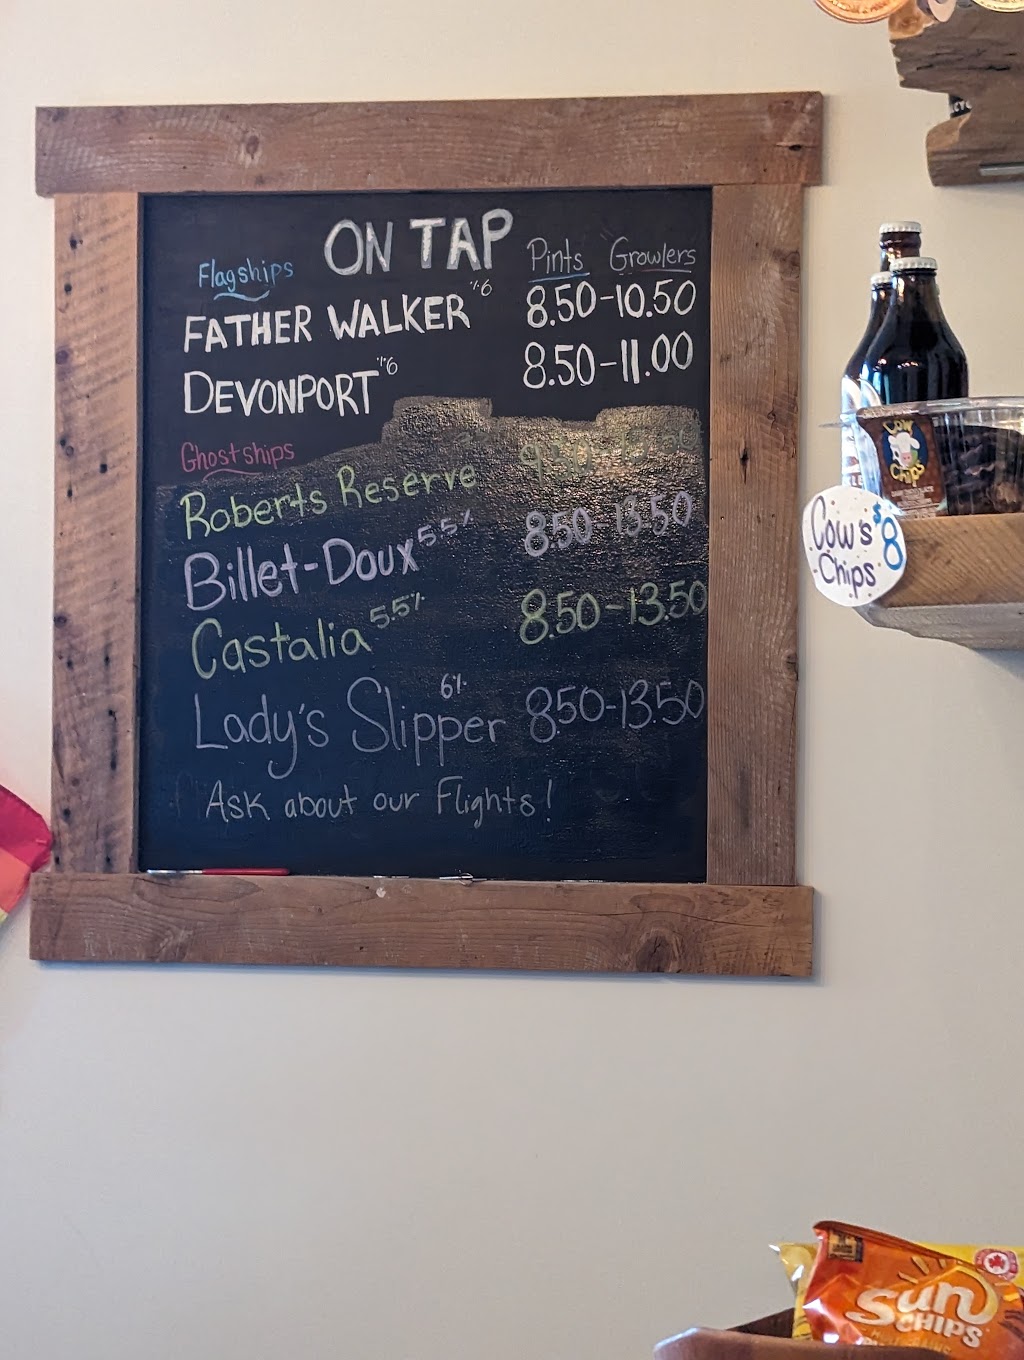 ON TAP
Flagships Pints Growlers
FATHER WALKER %6 8.50-10.50
DEVONPORT %6 8.50-11.00
Ghostships
Roberts Reserve
Billet-Doux 5.5% 8.50 13.50
Castalia 5.5% 8.50-13.50
Lady's Slipper 6% 8.50-13.50
Ask about our Flights!
Cow Chips
Cow's Chips $8
Sun CHIPS